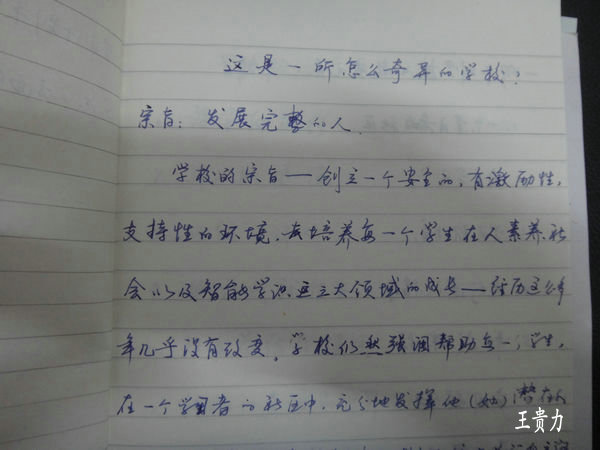 这是一所怎么奇异的学校?
宗旨:发展完整的人.
学校的宗旨——创立一个安全的,有激励性,
支持性的环境.去培养每一个学生在人素养.社
会以及智能学识这三大领域的成长——经历这么多
年几乎没有改变。学校仍然强调帮助每一个学生,
在一个学习者的社区中.充分地发挥他(她)潜在
王贵力